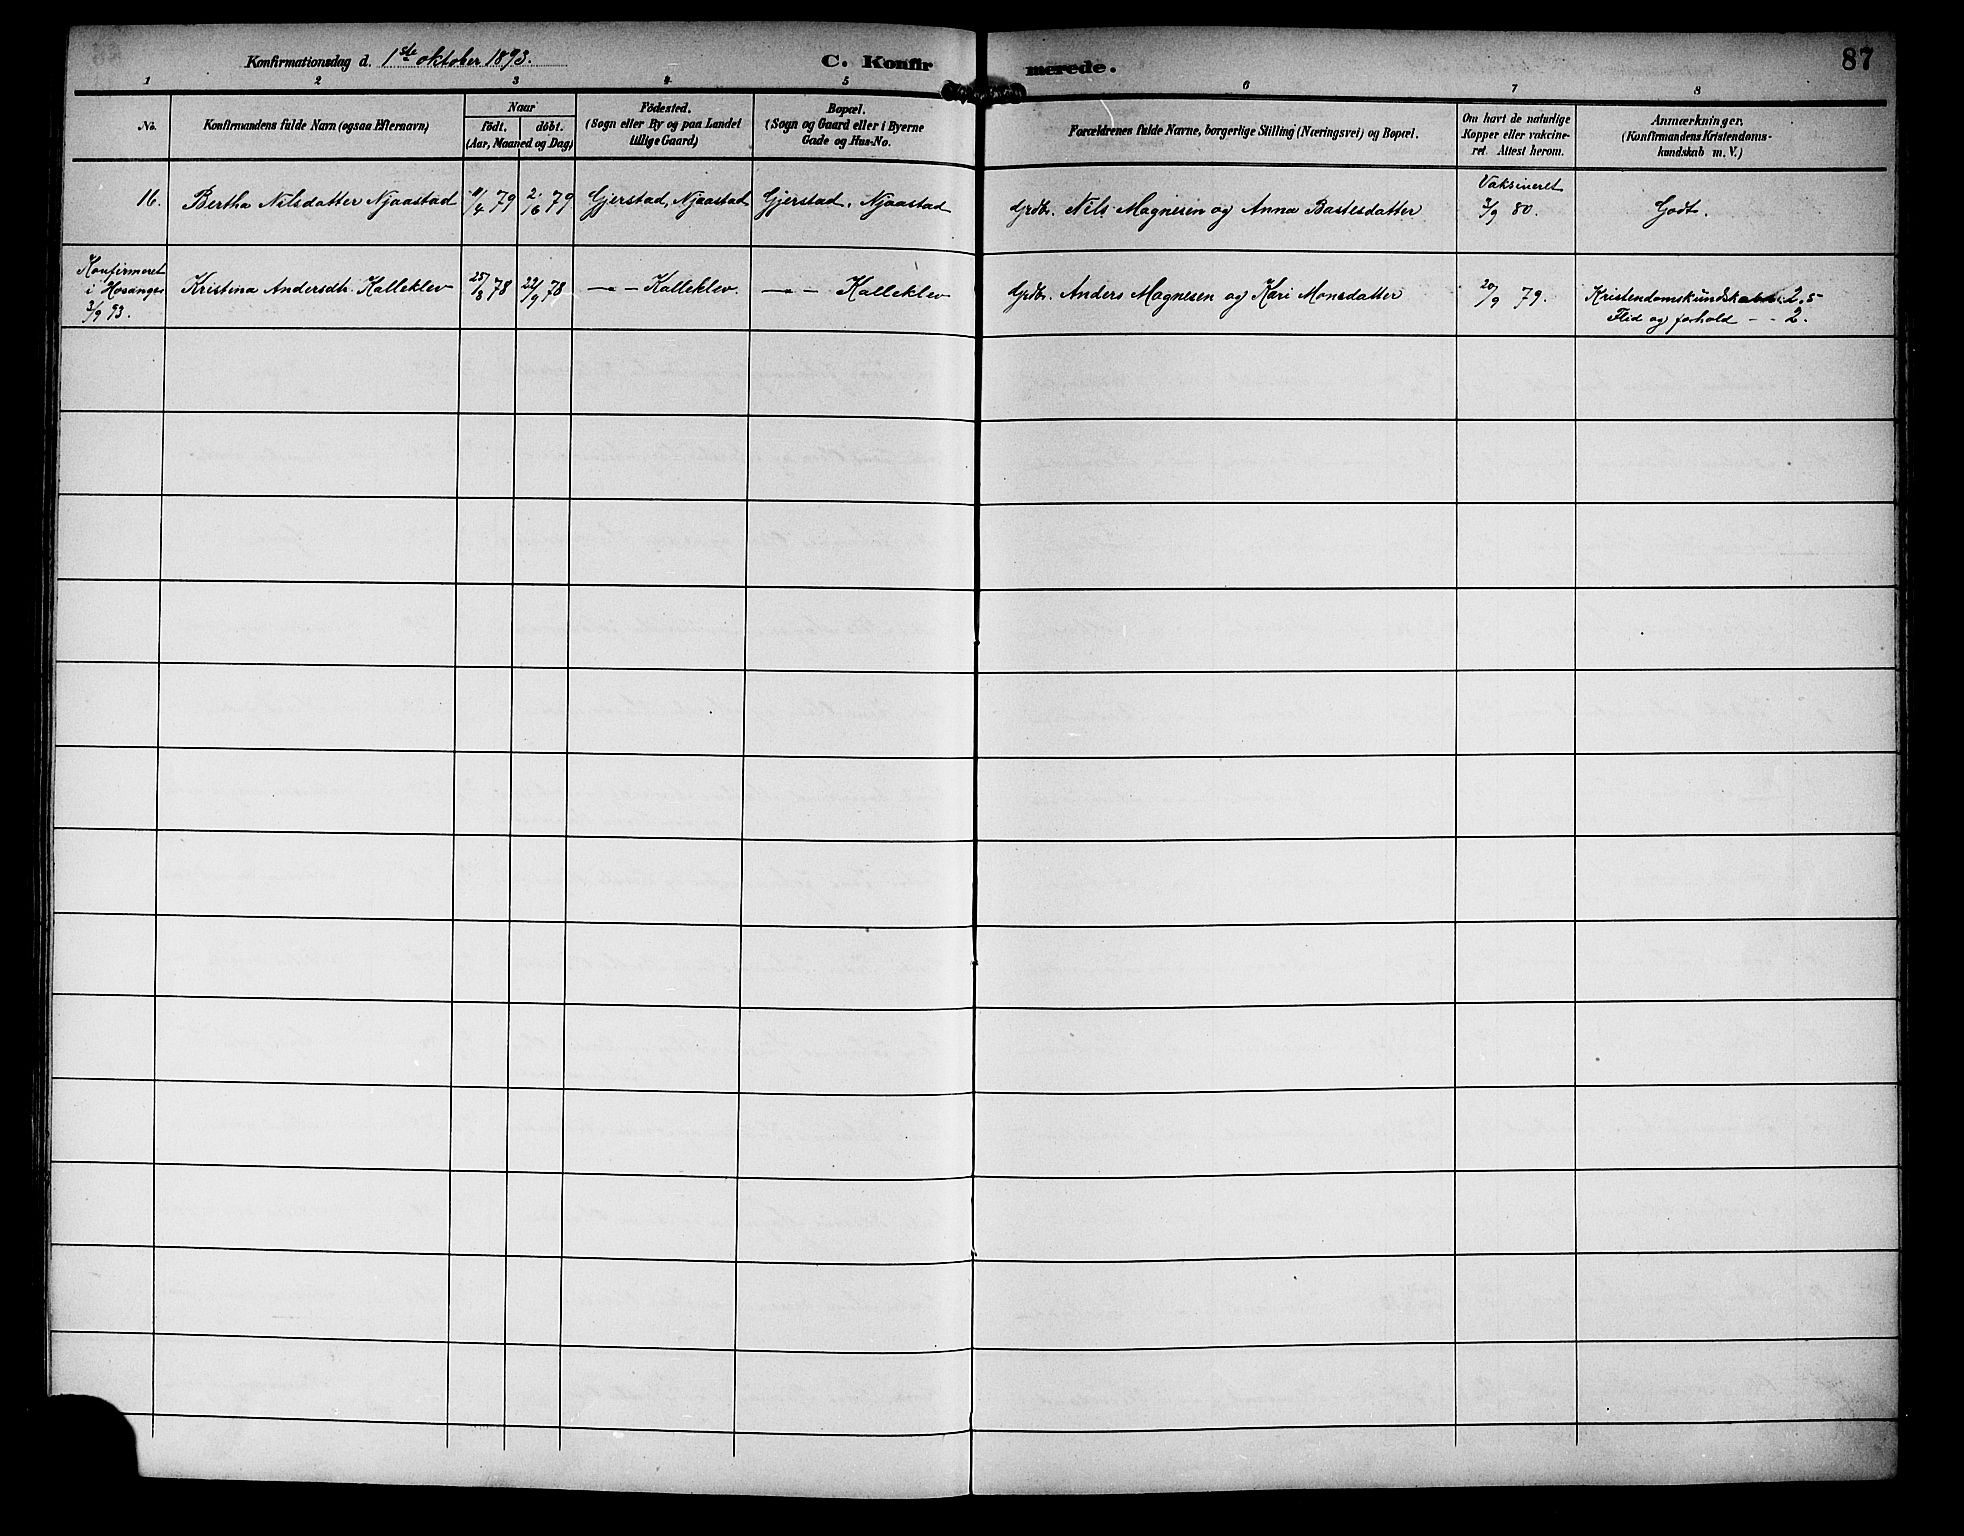 Konfirmationsdag d. 1ste oktober 1893.
C. Konfirmerede.
87
1 2 3 4 5 6 7 8
No.
Konfirmandens fulde Navn (ogsaa Efternavn)
Naar
født. døbt.
(Aar, Maaned og Dag)
Fødested.
(Sogn eller By og paa Landet
tillige Gaard)
Bopæl.
(Sogn og Gaard eller i Byerne
Gade og Hus-No.
Forældrenes fulde Navne, borgerlige Stilling (Næringsvei) og Bopæl.
Om havt de naturlige
Kopper eller vakcine-
ret. Attest herom.
Anmærkninger.
(Konfirmandens Kristendoms-
kundskab m. V.)
16. Bertha Nilsdatter Njaastad 11/4 79 2/6 79 Gjerstad, Njaastad Gjerstad, Njaastad Grdbr. Nils Magnesen og Anna Bastesdatter Vaksineret
3/9 80. Godt.
Konfirmeret
i Hosanger
3/9 93.
Kristina Andersdtr. Kalleklev 25/8 78 22/9 78 —„— Kalleklev. —„— Kalleklev Grdbr. Anders Magnesen og Kari Monsdatter 20/9 79. Kristendomskundskab: 2.5
Flid og forhold -- 2.